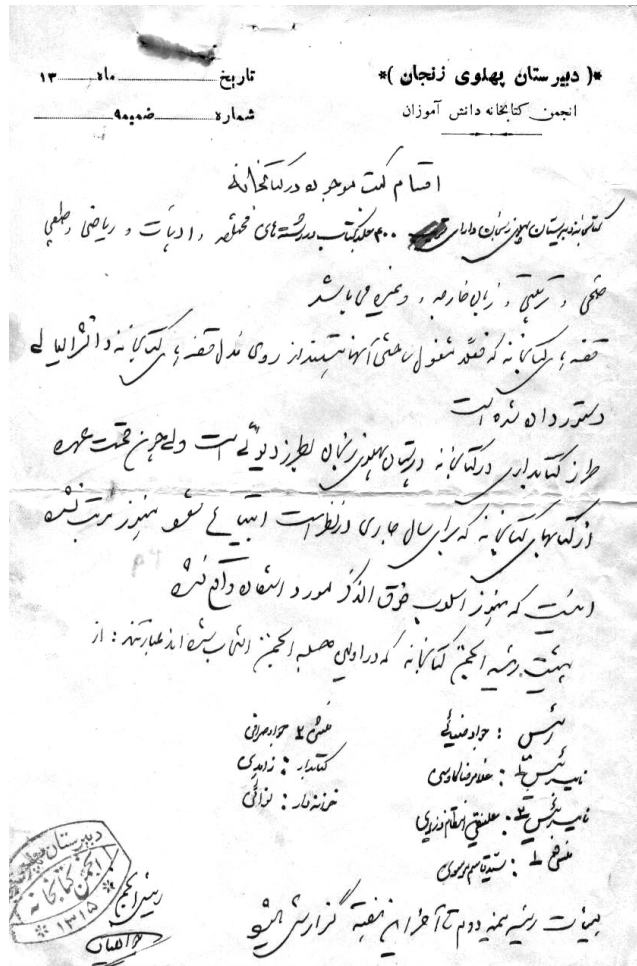 *( دبیرستان پهلوی زنجان )*
انجمن کتابخانه دانش آموزان
تاریخ ماه ۱۳
شماره ضمیمه ۹
اقسام کتب موجوده در کتابخانه
کتابخانه دبیرستان پهلوی زنجان دارای ۴۰۰ جلد کتاب در رشته های مختلفه ، ادبیات و ریاضی و طبیعی
صنعتی و تربیتی و زبان خارجه و غیره می باشد
قفسه های کتابخانه که فعلا مشغول ساختن آنها هستند از روی مدل قفسه های کتابخانه دانشسرایعالی
دستور داده شده است
طرز کتابداری در کتابخانه دبیرستان پهلوی زنجان بطرز دیوئی است ولی چون قسمت عمده
از کتابهای کتابخانه که برای سال جاری در نظر است ابتیاع شود هنوز مرتب نشده
اینست که هنوز اسلوب فوق الذکر مورد استفاده واقع نشده
هیئت رئیسه انجمن کتابخانه که در اولین جلسه انجمن انتخاب شده اند عبارتند : از
رئیس : جواد ضیائی
نایب رئیس ۱ : غلامرضا کاوسی
نایب رئیس ۲ : انتظام وزیری
منشی ۱ : سید قاسم موسوی
منشی ۲ جواد صرافی
کتابدار : زاهدی
خزانه دار : نوائی
هیئت رئیسه نیمه دوم تا آخر این هفته گزارش میشود
رئیس انجمن
دبیرستان پهلوی
انجمن کتابخانه
* ۱۳۱۵ *